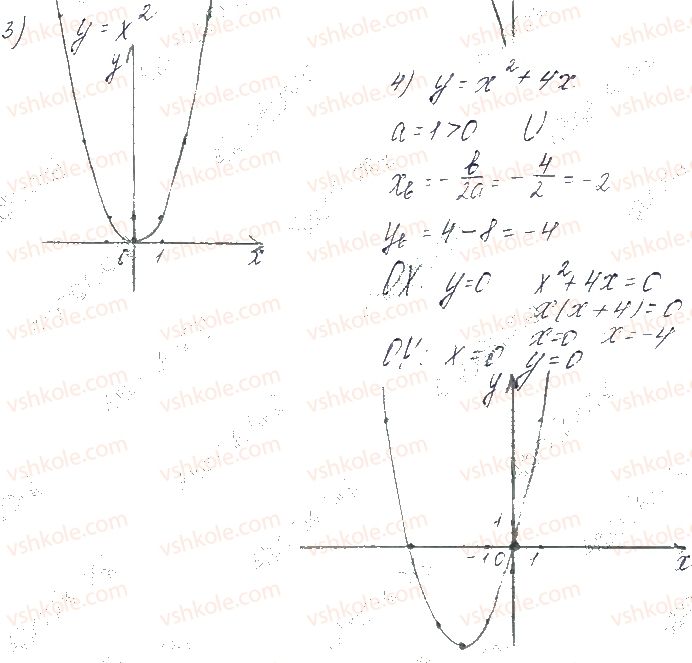 3) y = x²
y
0 1 x
4) y = x² + 4x
a = 1 > 0 U
x_b = -b/2a = -4/2 = -2
y_b = 4 - 8 = -4
OX: y = 0 x² + 4x = 0
x(x + 4) = 0
x = 0 x = -4
OY: x = 0 y = 0
y
1
-1 0 1 x
vshkole.com